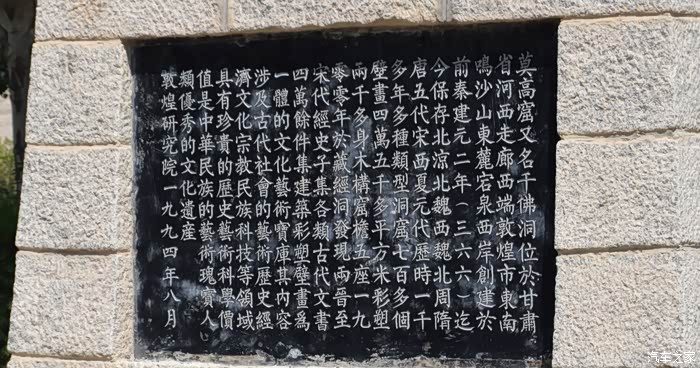 莫高窟又名千佛洞位於甘肅
省河西走廊西端敦煌市東南
鳴沙山東麓宕泉西岸創建於
前秦建元二年(三六六)迄
今保存北涼北魏西魏北周隋
唐五代宋西夏元代歷時一千
多年多種類型洞窟七百多個
壁畫四萬五千多平方米彩塑
兩千多身木構窟檐五座一九
零零年於藏經洞發現兩晉至
宋代經史子集各類古代文書
四萬餘件集建築彩塑壁畫爲
一體的文化藝術寶庫其內容
涉及古代社會的藝術歷史經
濟文化宗教民族科技等領域
具有珍貴的歷史藝術科學價
值是中華民族的藝術瑰寶人
類優秀的文化遺產
敦煌研究院一九九四年八月
汽车之家